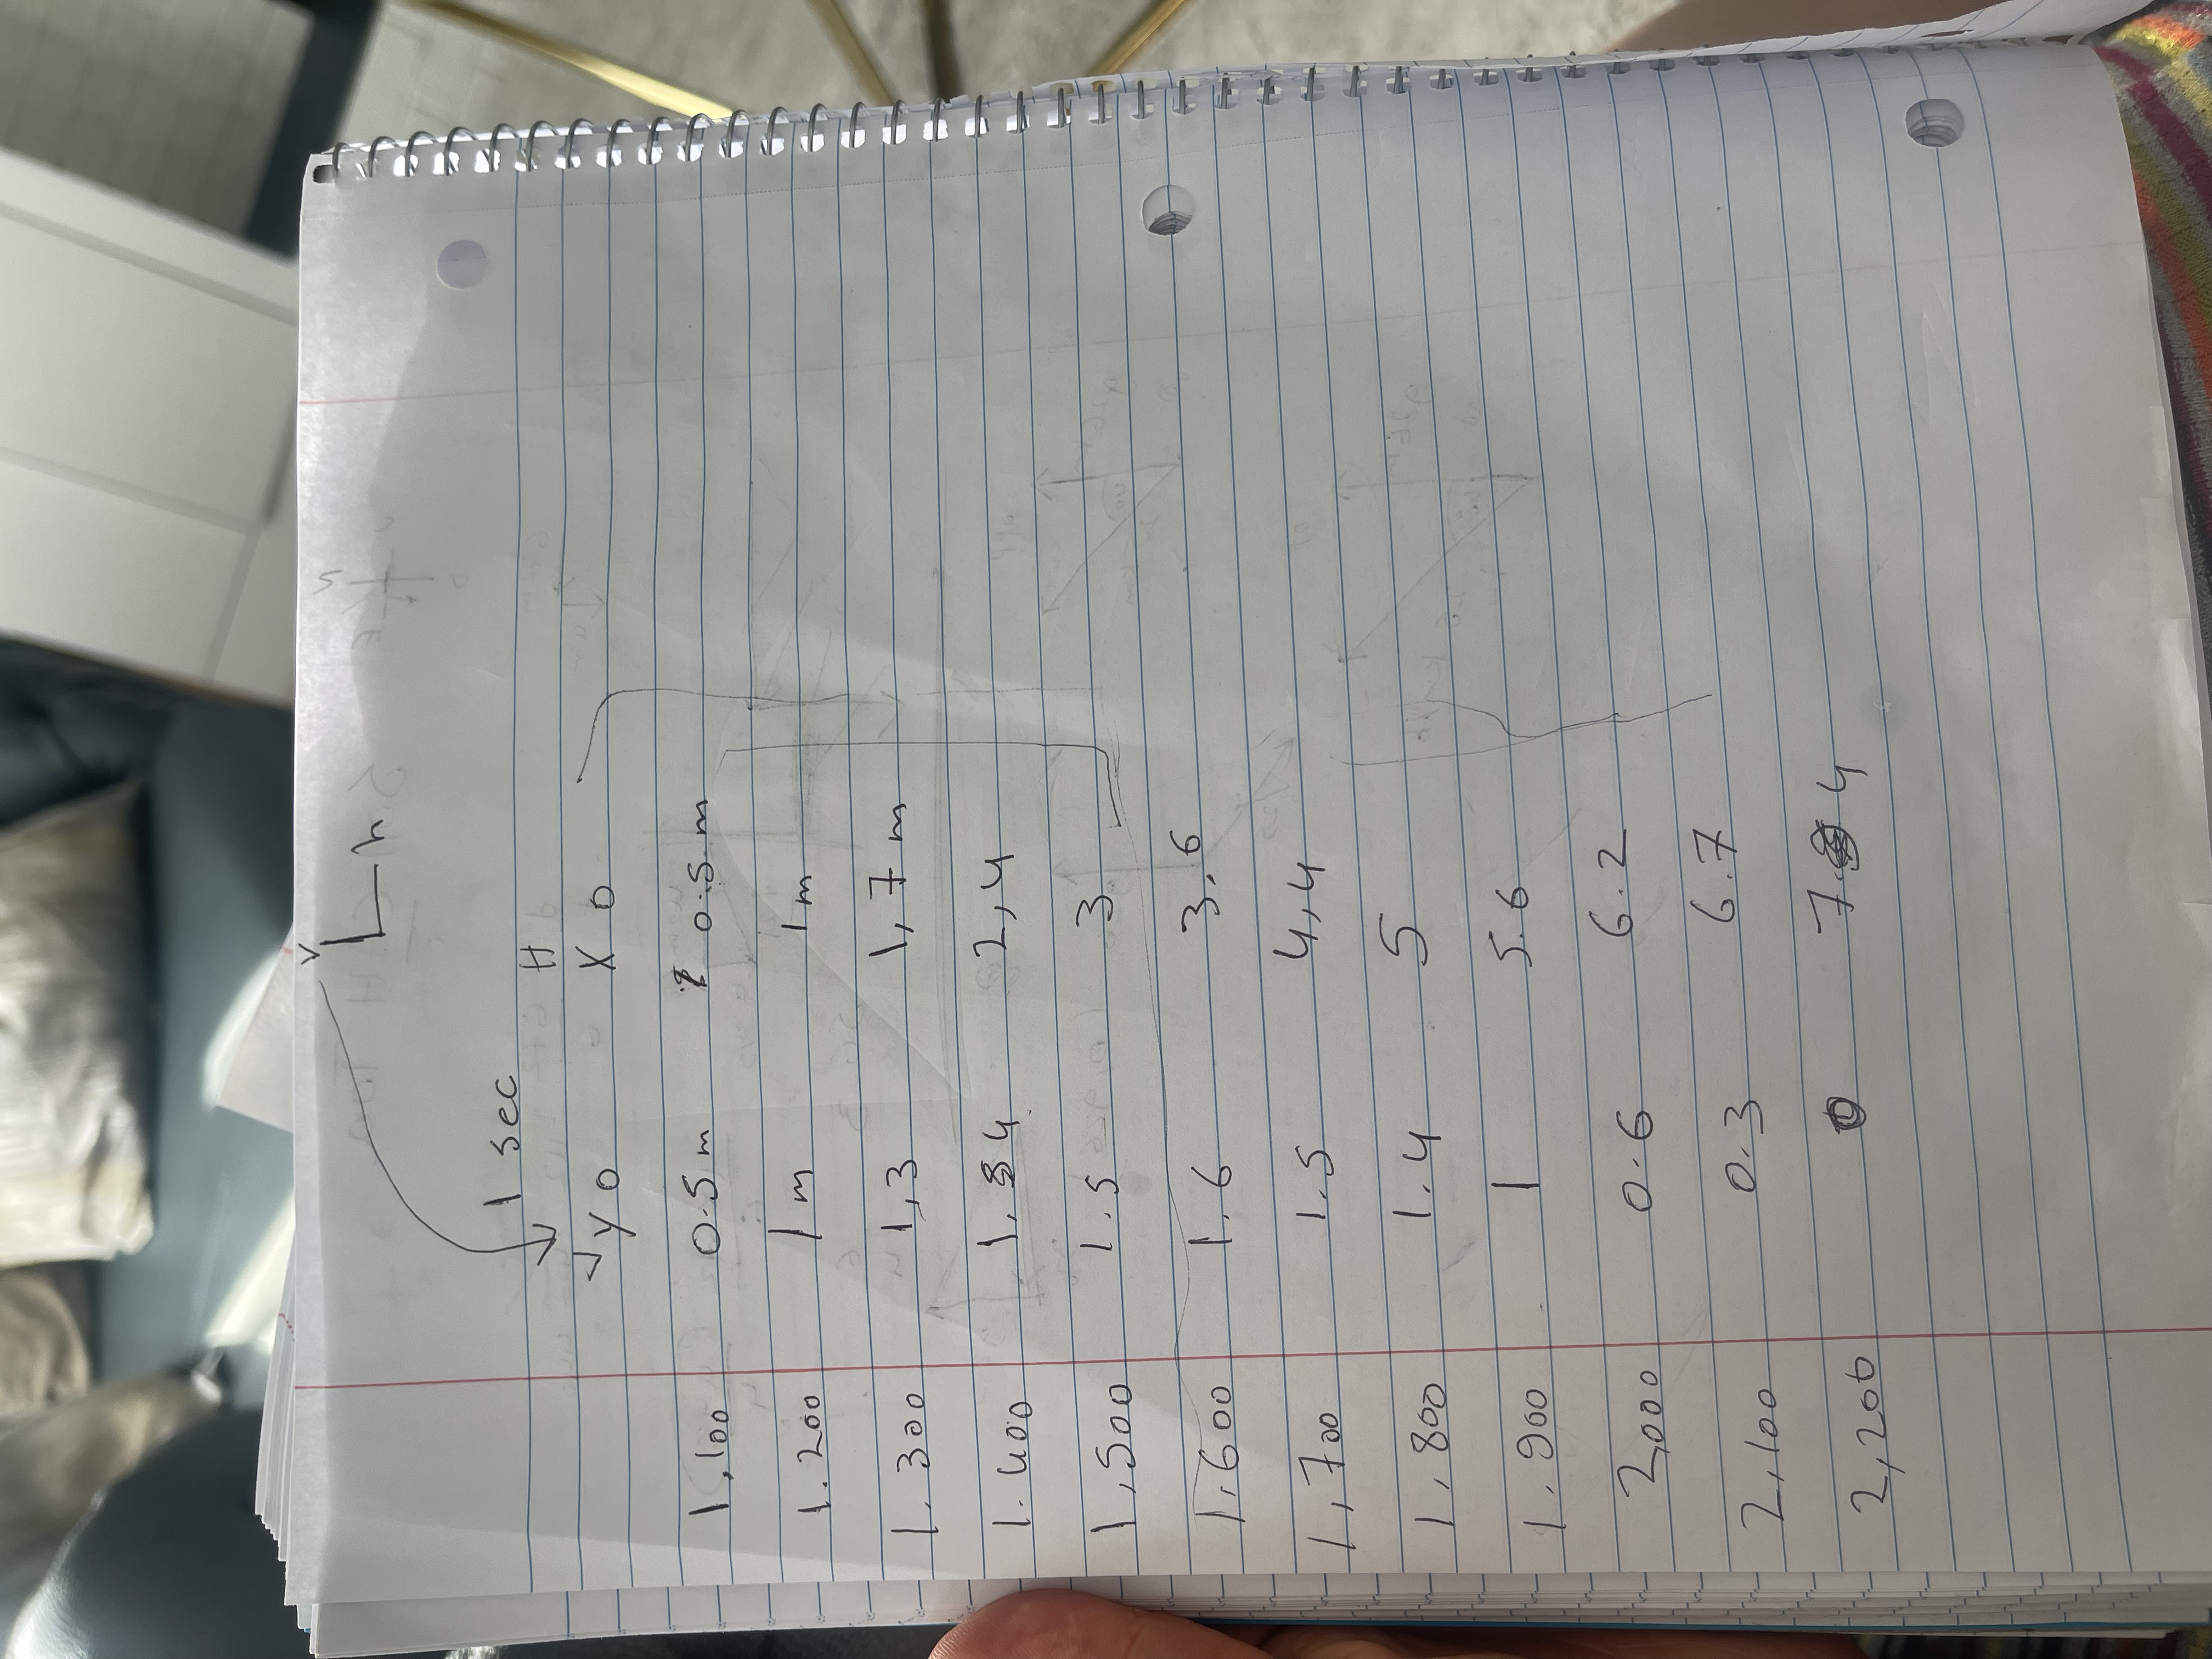 V
h
1 sec H
y 0 X 0
1,100 0.5m 0.5m
1.200 1m 1m
1.300 1,3 1,7m
1.400 1.4 2,4
1,500 1.5 3
1.600 1.6 3.6
1,700 1.5 4,4
1,800 1.4 5
1.900 1 5.6
2,000 0.6 6.2
2,100 0.3 6.7
2,200 0 7.4